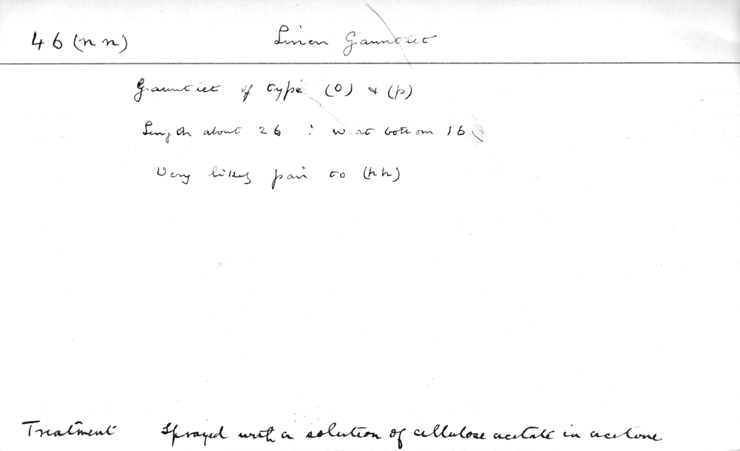 46 (nn) Linen Gauntlet
Gauntlet of type (o) & (p)
Length about 26 : w. at bottom 16
Very likely pair to (hh)
Treatment Sprayed with a solution of cellulose acetate in acetone